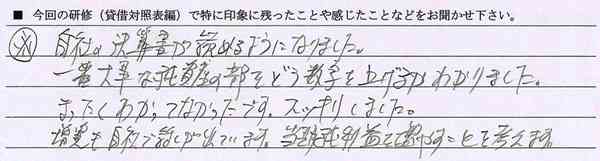 ■ 今回の研修（貸借対照表編）で特に印象に残ったことや感じたことなどをお聞かせ下さい。
自社の決算書が読めるようになりました。
一番大事な純資産の部をどう数字を上げるかわかりました。
まったくわかってなかったです。スッキリしました。
増資も自社で話しが出ています。当期純利益を増やすことを考えます